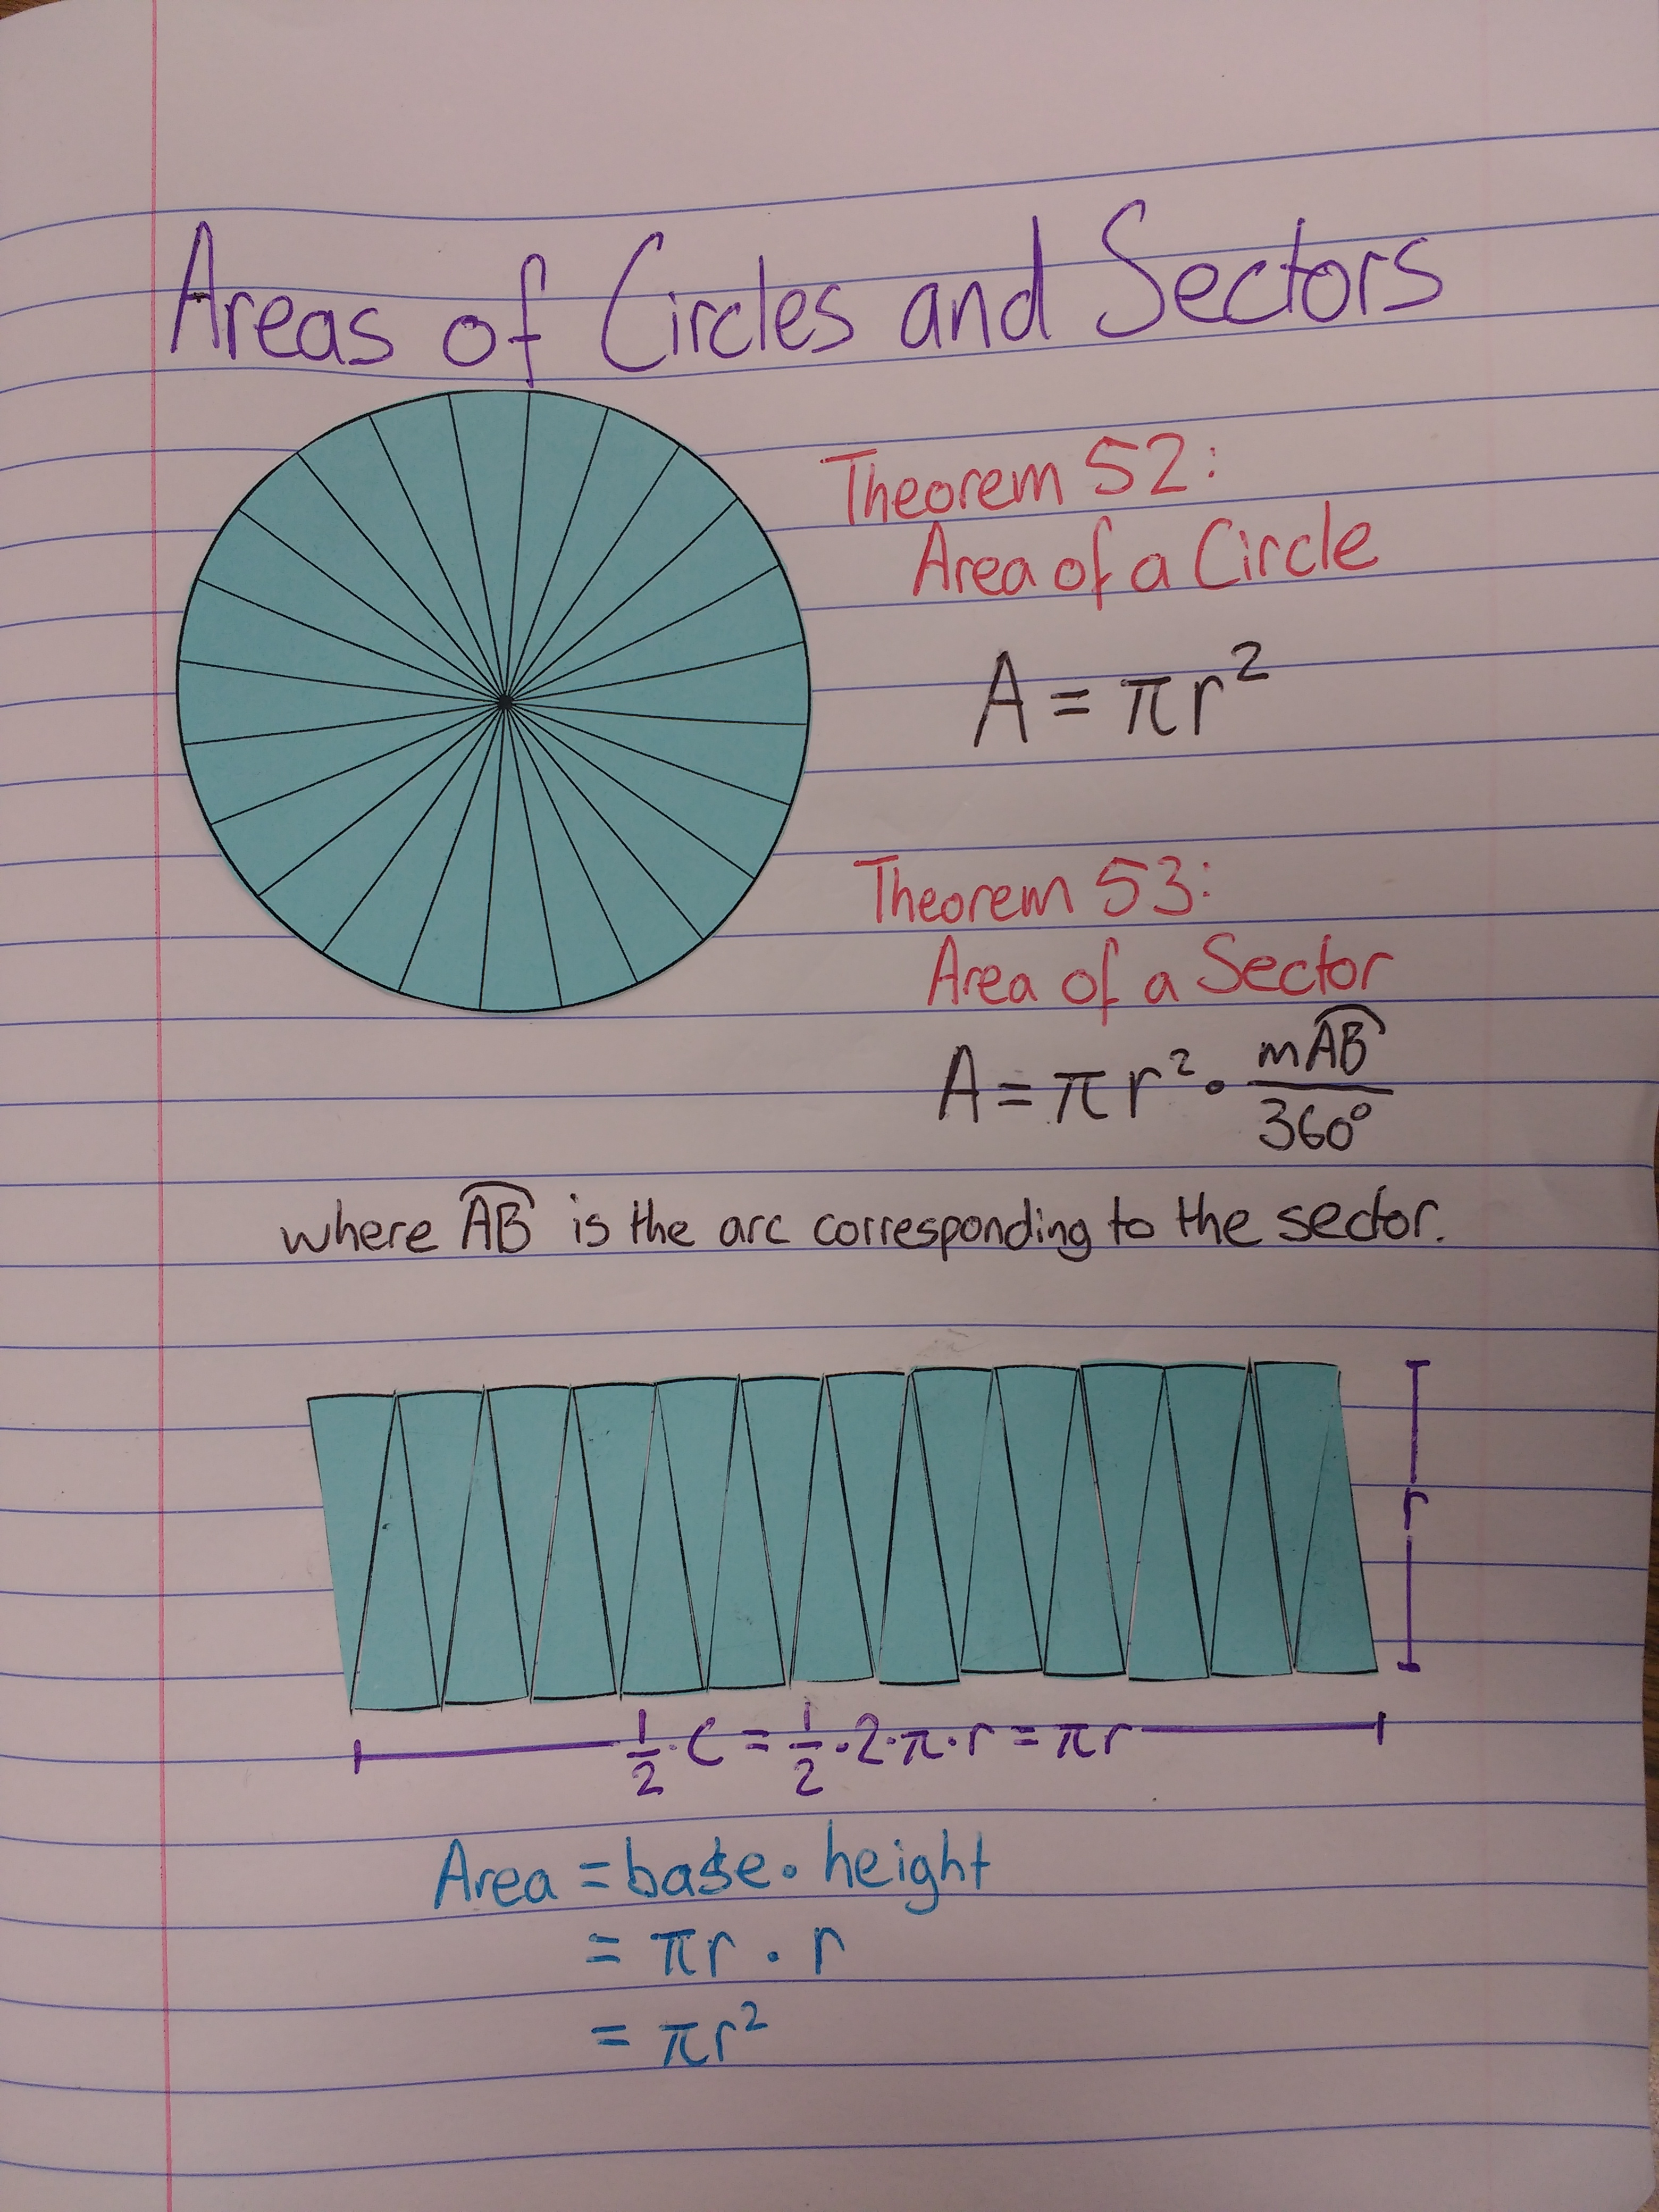 Areas of Circles and Sectors
Theorem 52:
Area of a Circle
A = πr²
Theorem 53:
Area of a Sector
A = πr² • mA͡B / 360°
where A͡B is the arc corresponding to the sector.
r
1/2 · C = 1/2 · 2 · π · r = πr
Area = base • height
= πr · r
= πr²